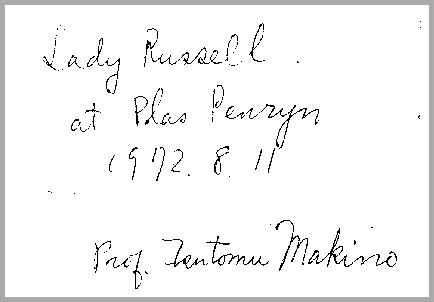 Lady Russell
at Plas Penryn
1972. 8. 11
Prof. Makino